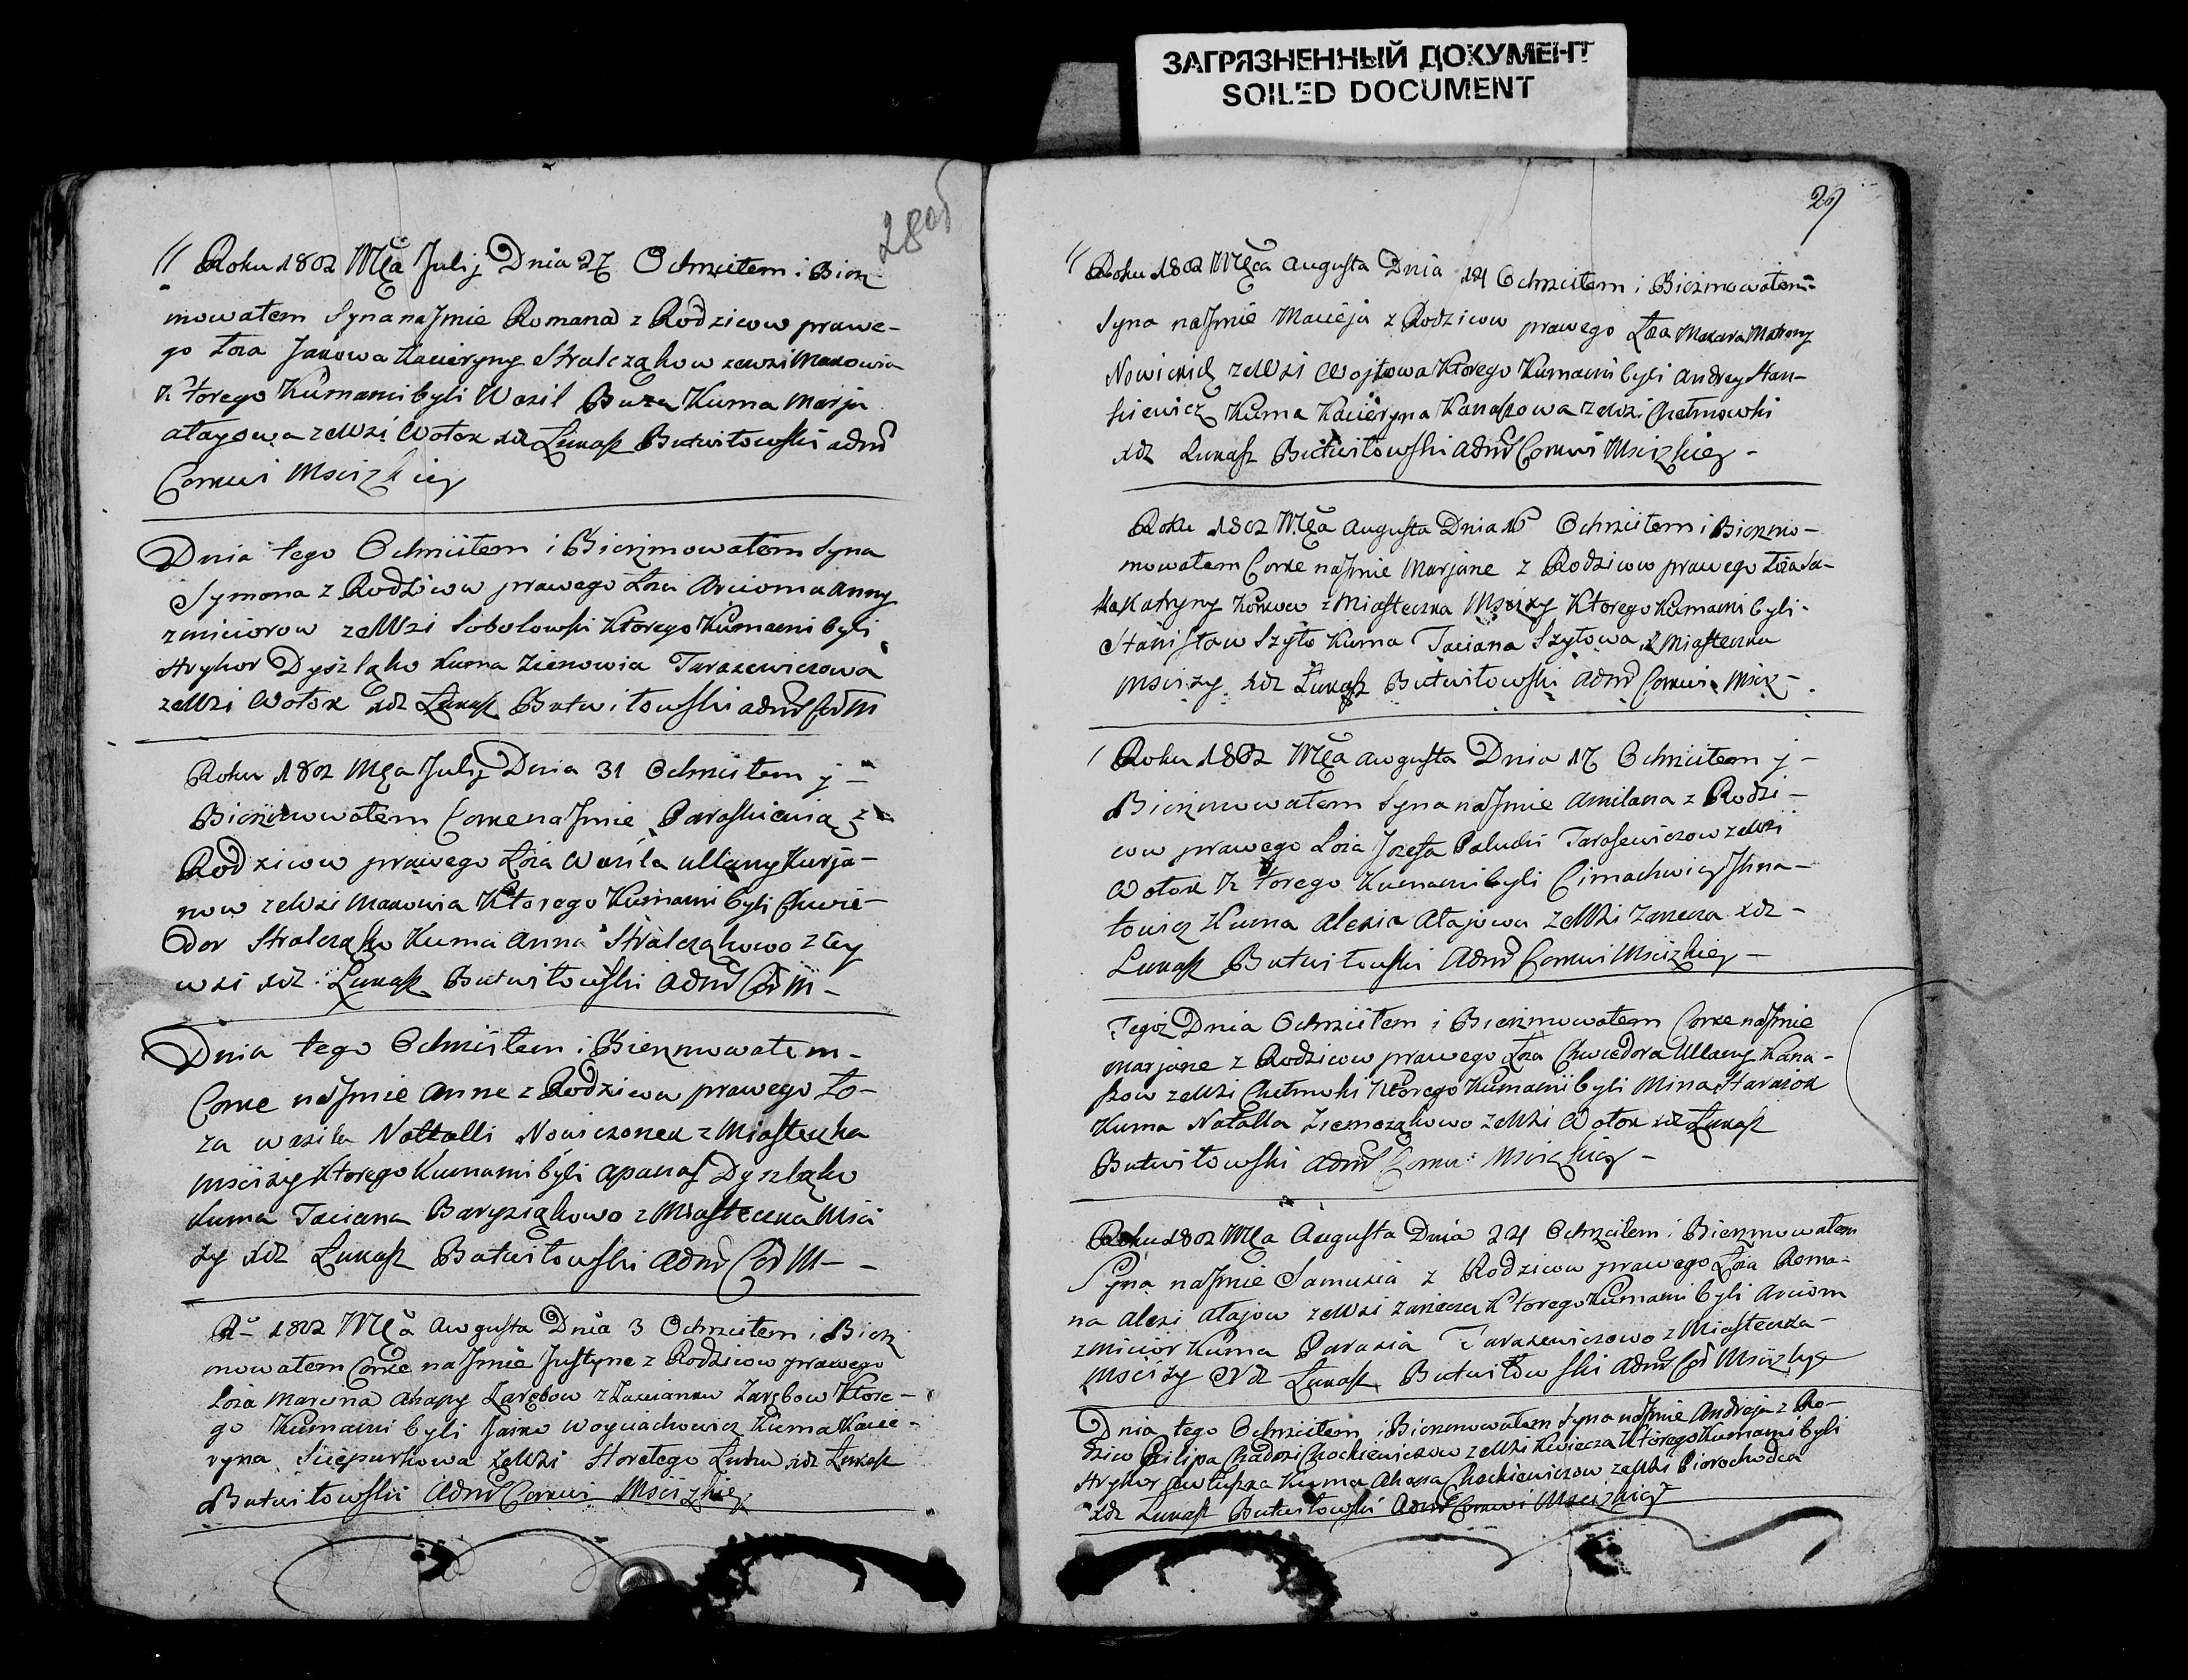 ЗАГРЯЗНЕННЫЙ ДОКУМЕНТ
SOILED DOCUMENT
28об
Roku 1802 Mca Julij Dnia 27 Ochrzciłem i Bierz
mowałem Syna na Jmie Romana z Rodzicow prawe-
go Łoża Jakowa Kacieryny Stralcząkow zewsi Makowia
Ktorego Kumami byli Wasil Buza Kuma Marja
ałayowa ze Wsi Wołok xdz Łukasz Butwiłowski adm
Cerkwi Mscizkiey
Dnia tego Ochrzciłem i Bierzmowałem Syna
Symona z Rodzicow prawego Łoża Arcioma Anny
zmiciorow ze Wsi Sobolowki Ktorego Kumami byli
Hryhor Dyszląko Kuma Zienowia Tarasewiczowa
ze Wsi Wołok xdz Łukasz Butwiłowski adm C M
Roku 1802 Mca Julij Dnia 31 Ochrzciłem j
Bierzmowałem Corke na Jmie Paraskiewia z
Rodzicow prawego Łoża Wasila Ullany Kurja-
now ze Wsi Makowia Ktorego Kumami byli Chwie-
dor Stralcząko Kuma Anna Stralcząkowo z tey
wsi xdz Łukasz Butwiłowski Adm C M
Dnia tego Ochrzciłem i Bierzmowałem
Corke na Jmie Anne z Rodzicow prawego Ło-
za Wasila Nattalli Nowiczonek z Miasteczka
Mscizy Ktorego Kumami byli Apanas Dyszląko
Kuma Taciana Barysiąkowo z Miasteczka Msci
zy xdz Łukasz Butwiłowski Adm C M
R 1802 Mca Awgusta Dnia 3 Ochrzciłem i Bierz
mowałem Corke na Jmie Justyne z Rodzicow prawego
Łoża Marcina Ahapy Zarębow z Zascianku Zarębow Ktore-
go Kumami byli Jasko Woyciachowicz Kuma Kacie-
ryna Sciepurkowa ze Wsi xdz Łukasz
Butwiłowski Adm Cerkwi Mscizkiey
29
Roku 1802 Mca Augusta Dnia 14 Ochrzciłem i Bierzmowałem
Syna na Jmie Macieja z Rodzicow prawego Łoża Makara Matrony
Nowickich ze Wsi Wojłowa Ktorego Kumami byli Andrey Stan-
kiewicz Kuma Kacieryna Kanaszowa ze Wsi Chełmowki
xdz Łukasz Butwiłowski Adm Cerkwi Mscizkiey
Roku 1802 Mca Augusta Dnia 16 Ochrzciłem i Bierzmo-
mowałem Corke na Jmie Marjane z Rodzicow prawego Łoża Sa-
Katryny z Miasteczka Mscizy Ktorego Kumami byli
Stanisław Szyło Kuma Taciana Szyłowa z Miasteczka
Mscizy xdz Łukasz Butwiłowski Adm Cerkwi Msciz
Roku 1802 Mca Awgusta Dnia 17 Ochrzciłem j
Bierzmowałem Syna na Jmie Amilana z Rodzi-
cow prawego Łoża Jozefa Paluchi Tarasewiczow ze Wsi
Wołok Ktorego Kumami byli Cimachwiey Jhna-
towicz Kuma Alexia Ałajowa ze Wsi Zarzecza xdz
Łukasz Butwiłowski Adm Cerkwi Mscizkiey
Tegoż Dnia Ochrzciłem i Bierzmowałem Corke na Jmie
Marjane z Rodzicow prawego Łoża Chwiedora Ullany Kana-
szow ze Wsi Chełmowki Ktorego Kumami byli Mina
Kuma Natalla Ziemcząkowo ze Wsi Wołok xdz Łukasz
Butwiłowski Adm Cerkwi Mscizkiey
Roku 1802 Mca Augusta Dnia 24 Ochrzciłem i Bierzmowałem
Syna na Jmie Samusia z Rodzicow prawego Łoża Roma-
na Alexi Ałajow ze Wsi Zarzecza Ktorego Kumami byli Arciom
zmicior Kuma Parasia Tarasewiczowo z Miasteczka
Mscizy xdz Łukasz Butwiłowski Adm C Mscizkiey
Dnia tego Ochrzciłem i Bierzmowałem Syna na Jmie Andreja z Ro-
dzicow Pilipa Chadosi Chackiewiczow ze Wsi Ktorego Kumami byli
Hryhor Awłuszka Kuma Ahassa Chackiewiczow ze Wsi Pierachodca
xdz Łukasz Butwiłowski Adm Cerkwi Mscizkiey